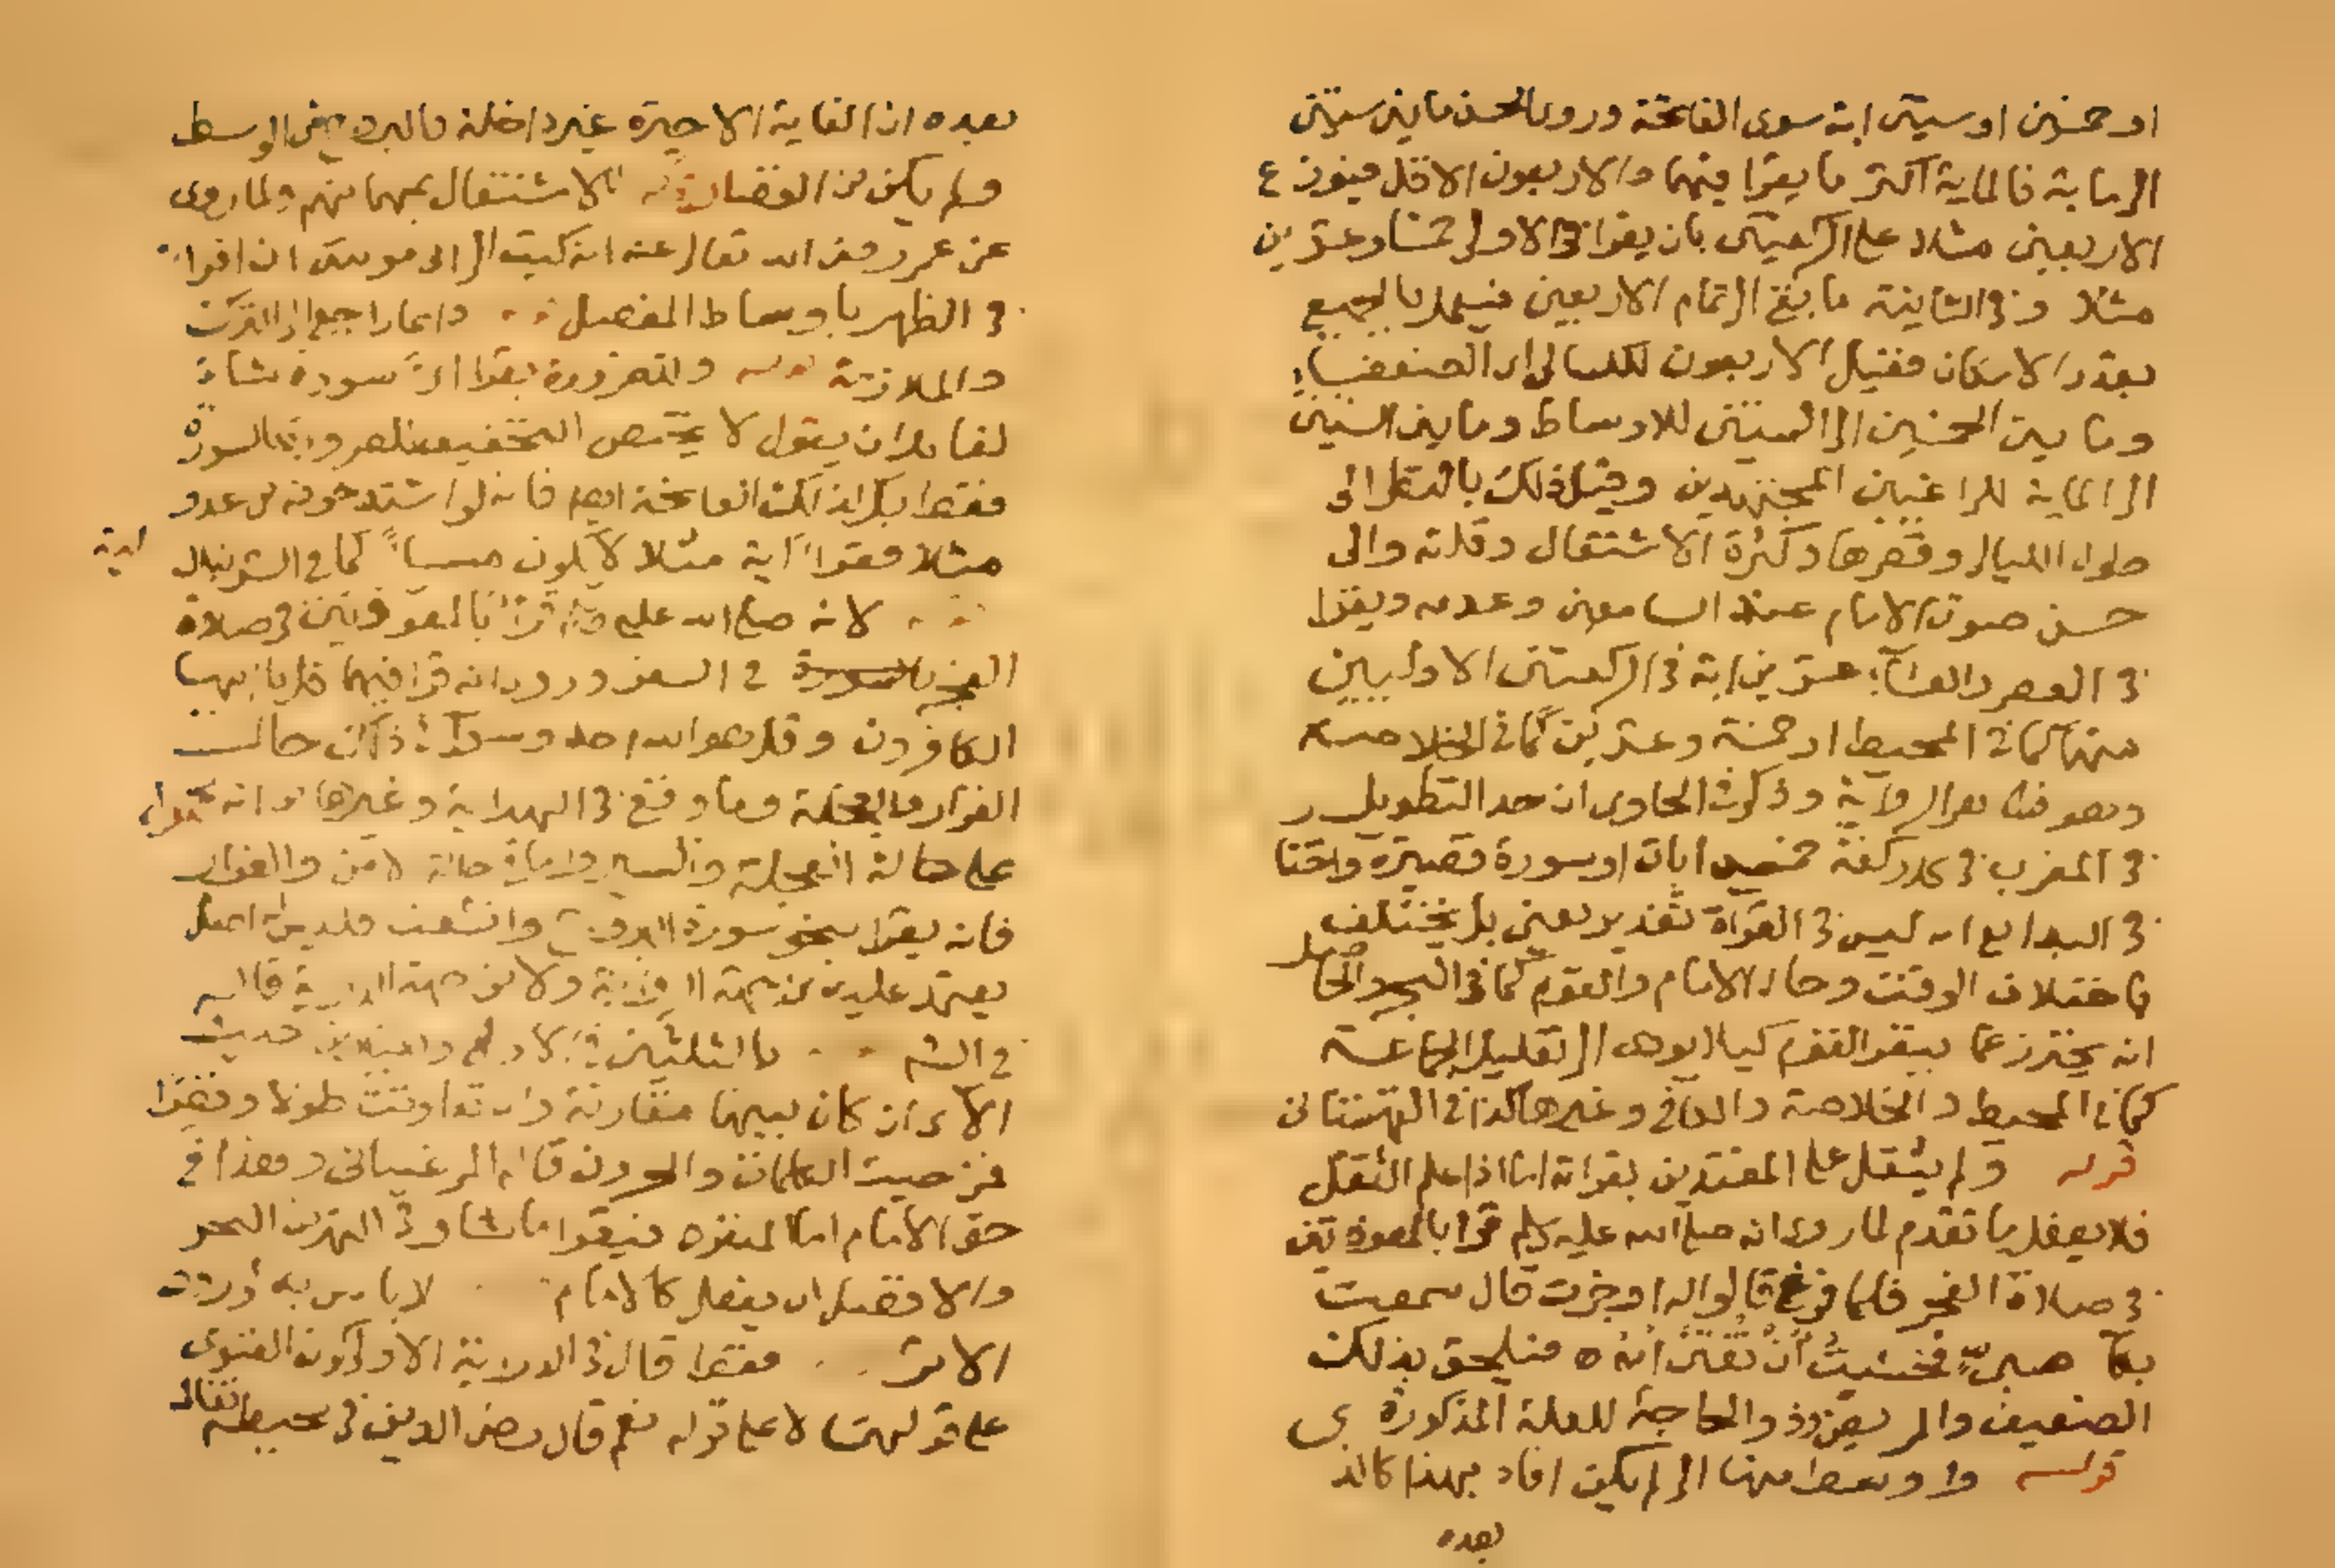 او خمسين او ستين اية سوى الفاتحة وروى الحسن ما بين ستين
الى ماية فالماية اكثر ما يقرا فيهما والاربعون الاقل فيوزع
الاربعين مثلا على الركعتين بان يقرا في الاولى خمسا وعشرين
مثلا وفي الثانية ما بقي الى تمام الاربعين فيعمل بالجميع
بقدر الامكان فقيل الاربعون للكسالى اي الضعفاء
وما بين الخمسين الى الستين للاوساط وما بين الستين
الى الماية للراغبين المجتهدين وقيل ذلك بالنظر الى
طول الليالي وقصرها وكثرة الاشتغال وقلته والى
حسن صوت الامام عند السامعين وعدمه ويقرا
في العصر والعشاء عشرين اية في الركعتين الاوليين
منهما كما في المحيط او خمسة وعشرين كما في الخلاصة
وهو ظاهر الرواية وذكر في الحاوي ان حد التطويل
في المغرب في كل ركعة خمس ايات او سورة قصيرة واختا
في البدايع انه ليس في القراة تقدير معين بل يختلف
باختلاف الوقت وحال الامام والقوم كما في البحر والحاصل
انه يحترز عما ينفر القوم كيلا يودي الى تقليل الجماعة
كما في المحيط والخلاصة والكافي وغيرها كذا في القهستاني
قوله ولم يثقل على المقتدين بقراته اما اذا علم الثقل
فلا يفعل ما تقدم لما روي انه صلى الله عليه وسلم قرا بالمعوذتين
في صلاة الفجر فلما فرغ قالوا له اوجزت قال سمعت
بكاء صبيٍّ فخشيتُ أن تُفتَنَ أمُّه فيلحق بذلك
الضعيف والمريض وذو الحاجة للعلة المذكورة
قوله واوسط منها ان لم يكن افاد بهذا كالذ
بعده
بعده ان الغاية الاخيرة غير داخلة فالبروج من الوسط
ولم يكن من القصار قوله للاشتغال بمهماتهم ولما روي
عن عمر رضي الله تعالى عنه انه كتب الى ابي موسى ان اقرا
في الظهر باوساط المفصل
والملازمة قوله والضرورة بقرا اي سورة شاء
لقائل ان يقول لا يختص التخفيف للضرورة بالسورة
فقط بل كذلك الفاتحة ايضا فانه لو اشتد خوفه من عدو
مثلا فقرا اية مثلا لا يكون مسيأً كما في الشرنبلالي
لانه صلى الله عليه وسلم قرا بالمعوذتين في صلاة
الفجر في السفر وروي انه قرا فيهما قل يا ايها
الكافرون وقل هو الله احد وسواء في ذلك حالت
القرار والعجلة وما وقع في الهداية وغيرها انه
على حالة العجلة والسير واما في حالة الامن والقرار
فانه يقرا بنحو سورة البروج وانشقت فليس له اصل
يعتمد عليه من جهة الرواية ولا من جهة الدراية قاله
في الشرح بالثلثين في الاولى
الآي ان كان بينهما مقاربة وان تفاوتت طولا وقصرا
فمن حيث الكلمات والحروف قاله المرغيناني وهذا في
حق الامام اما المنفرد فيقرا ما شاء وفي النهر عن البحر
والافضل ان يفعل كالامام لا باس به
الاثر فقط قال في الدراية الاولى كون الفتوى
على قولهما لا على قوله نعم قال رضي الدين في محيطه